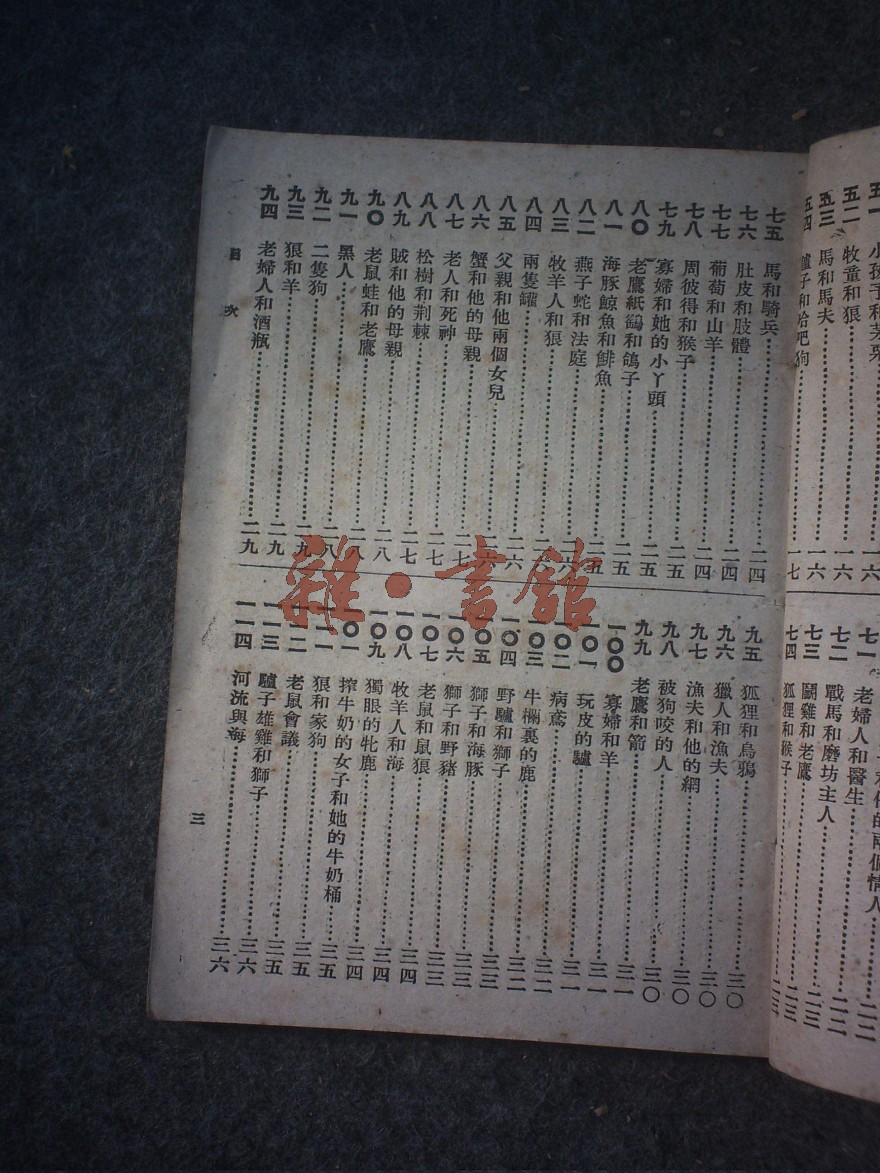 小孩子和
五二 牧童和狼 一六
五三 馬和馬夫 一六
五四 驢子和哈吧狗 一七
的兩個情人
七一 老婦人和醫生 二二
七二 戰馬和磨坊主人 二二
七三 鬭雞和老鷹 二三
七四 狐狸和猴子 二三
七五 馬和騎兵 二四
七六 肚皮和肢體 二四
七七 葡萄和山羊 二四
七八 周彼得和猴子 二五
七九 寡婦和她的小丫頭 二五
八〇 老鷹紙鷂和鴿子 二五
八一 海豚鯨魚和鯡魚 二五
八二 燕子蛇和法庭 二六
八三 牧羊人和狼 二六
八四 兩隻罐 二六
八五 父親和他兩個女兒 二六
八六 蟹和他的母親 二七
八七 老人和死神 二七
八八 松樹和荆棘 二七
八九 賊和他的母親 二八
九〇 老鼠蛙和老鷹 二八
九一 黑人 二八
九二 二隻狗 二九
九三 狼和羊 二九
九四 老婦人和酒瓶 二九
九五 狐狸和烏鴉 三〇
九六 獵人和漁夫 三〇
九七 漁夫和他的網 三〇
九八 被狗咬的人 三〇
九九 老鷹和箭 三一
一〇〇 寡婦和羊 三一
一〇一 玩皮的驢 三一
一〇二 病鳶 三二
一〇三 牛欄裏的鹿 三二
一〇四 野驢和獅子 三三
一〇五 獅子和海豚 三三
一〇六 獅子和野豬 三三
一〇七 老鼠和鼠狼 三四
一〇八 牧羊人和海 三四
一〇九 獨眼的牝鹿 三四
一一〇 搾牛奶的女子和她的牛奶桶 三五
一一一 狼和家狗 三五
一一二 老鼠會議 三五
一一三 驢子雄雞和獅子 三六
一一四 河流與海 三六
目次
三
雜·書館